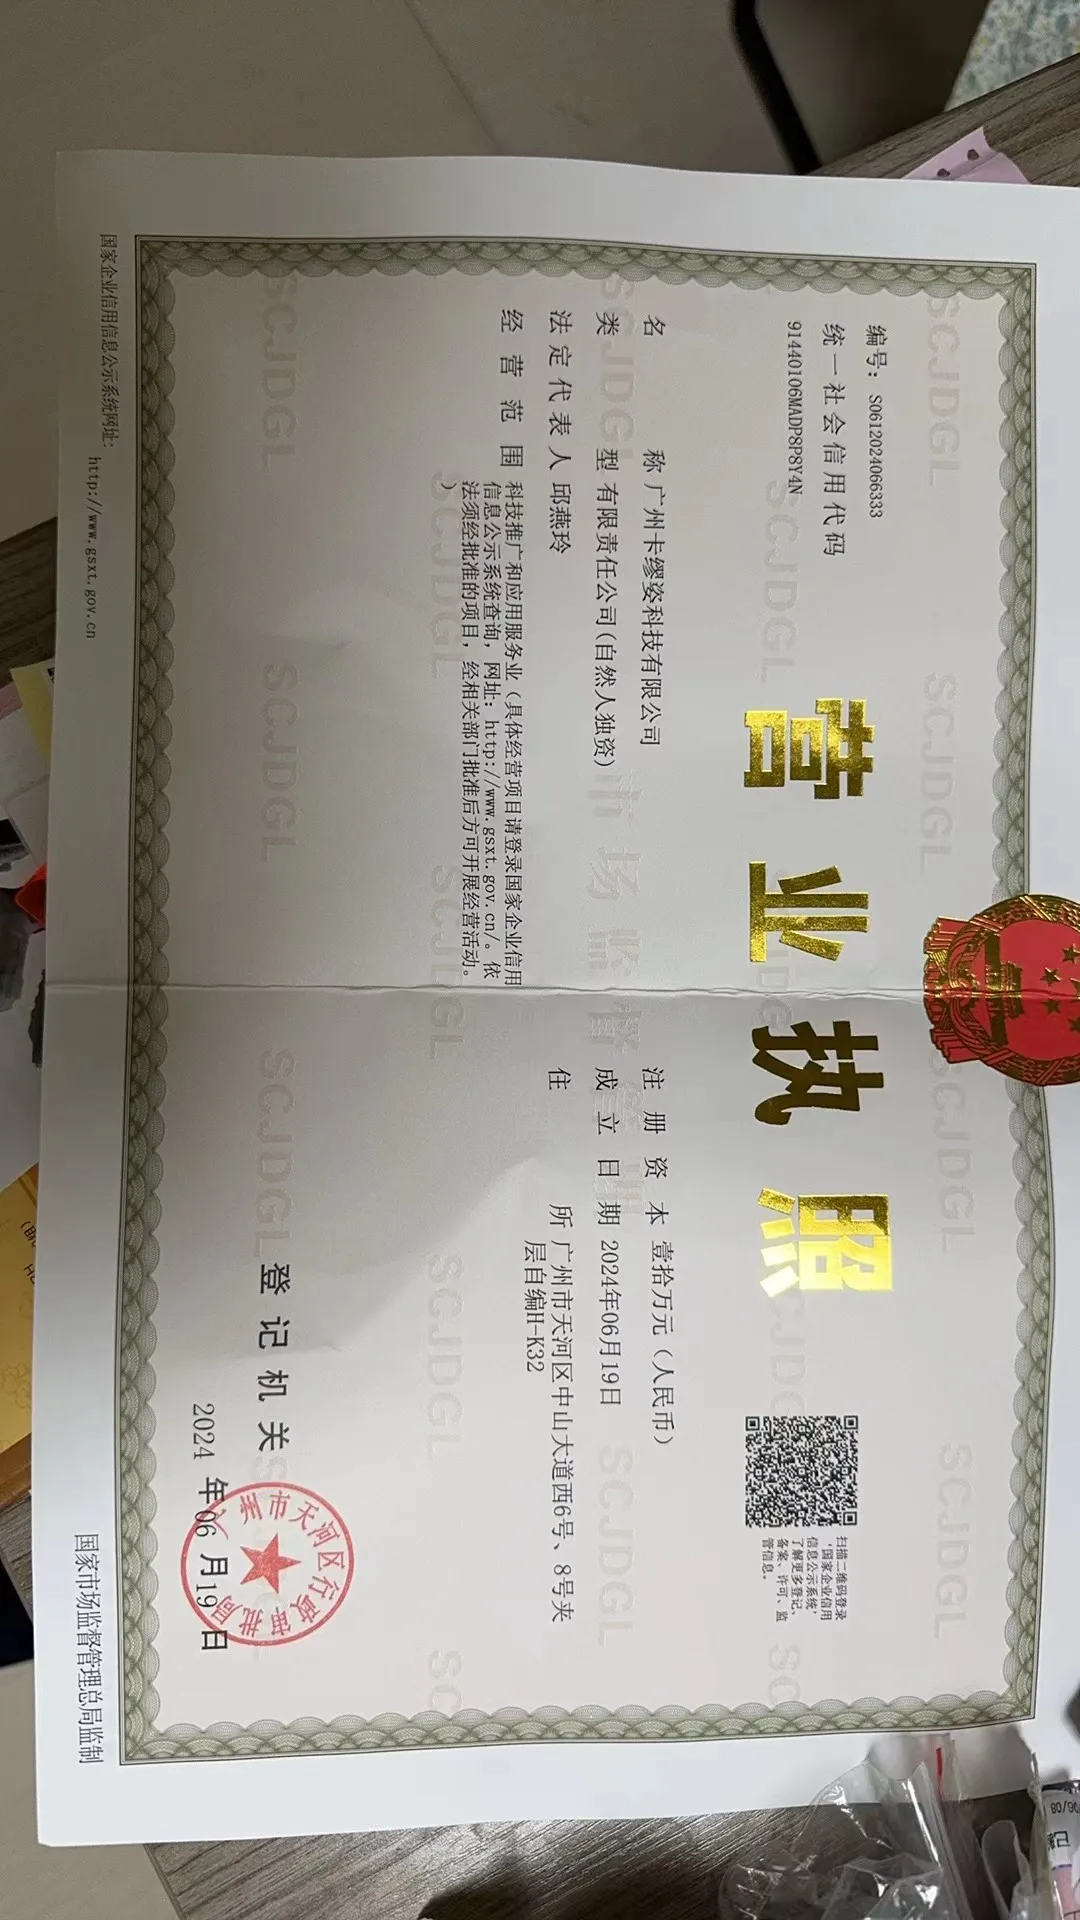 编号：S0612024066333
统一社会信用代码
91440106MADP8P8Y4N
营业执照
扫描二维码登录
‘国家企业信用
信息公示系统’
了解更多登记、
备案、许可、监
管信息。
名称 广州卡缪姿科技有限公司
类型 有限责任公司(自然人独资)
法定代表人 邱燕玲
经营范围 科技推广和应用服务业（具体经营项目请登录国家企业信用
信息公示系统查询，网址：http://www.gsxt.gov.cn/。依
法须经批准的项目，经相关部门批准后方可开展经营活动。
）
注册资本 壹拾万元（人民币）
成立日期 2024年06月19日
住所 广州市天河区中山大道西6号、8号夹
层自编H-K32
登记机关
2024年06月19日
广州市天河区行政审批局
国家企业信用信息公示系统网址：http://www.gsxt.gov.cn
国家市场监督管理总局监制
SCJDGL
市场监督管理